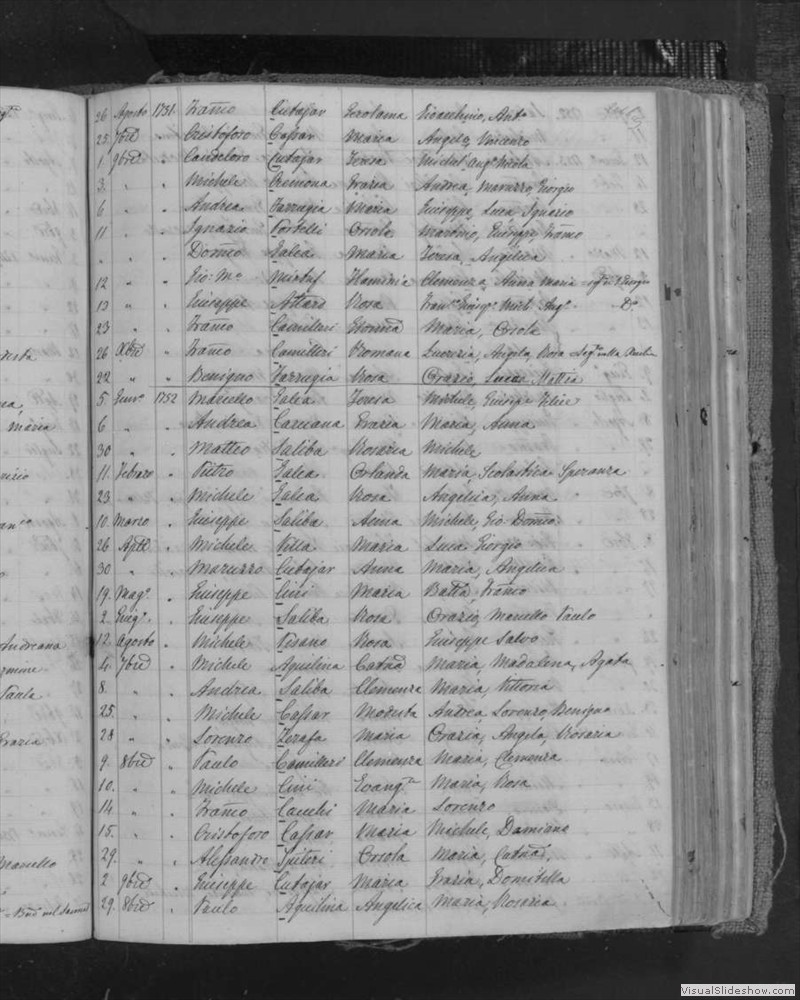 26 Agosto 1751. Franco Cutajar Gerolama Gioacchino, Anto
25 7bre " Cristoforo Cassar Maria Angelo, Vincenzo
1 9bre " Candeloro Cutajar Teresa Michel. Ang. Nicola
3. " " Michele Cremona Grazia Andrea, Maruzzo, Giorgio
6 " " Andrea Farrugia Maria Giuseppe, Luca, Ignazio
11 " " Ignazio Portelli Orsola Martino, Giuseppe, Franco
" " " Domco Galea Maria Teresa, Angelica
12 " " Gio Ma Mirtuf Flaminia Clemenza, Anna Maria
13 " " Giuseppe Attard Rosa
23 " " Franco Camilleri Maria, Orsola
26 Xbre " Franco Camilleri Romana Lucrezia, Angela, Rosa
22 " " Benigno Farrugia Rosa Orazio, Luca, Mattia
5 Genro 1752 Mariello Galea Teresa Michele, Giuseppe Felice
6 " " Andrea Caruana Grazia Maria, Anna
30 " " Matteo Saliba Rosaria Michele
11. Febraro " Pietro Galea Orlanda Maria, Scolastica Speranza
23 " " Michele Galea Rosa Angelica, Anna
10. Marzo " Giuseppe Saliba Anna Michele, Gio Domco
26 Aple " Michele Vella Maria Luca Giorgio
30 " " Maruzzo Cutajar Anna Maria, Angelica
19. Mago. " Giuseppe Cini Maria Batta, Franco
2 Giugo. " Giuseppe Saliba Rosa Orazio, Mariello Paulo
12. Agosto " Michele Pisano Rosa Giuseppe Salvo
4. 7bre " Michele Aquilina Catna Maria, Madalena, Agata
8. " " Andrea Saliba Clemenza Maria, Vittoria
25. " " Michele Cassar Modesta Andrea, Lorenzo, Benigno
28 " " Lorenzo Zerafa Maria Orazia, Angela, Rosaria
9. 8bre " Paulo Camilleri Clemenza Maria, Clemenza
10. " " Michele Cini Evanga Maria, Rosa
14. " " Franco Cauchi Maria Lorenzo
15. " " Cristoforo Cassar Maria Michele, Damiano
29. " " Alessandro Spiteri Orsola Maria, Catna,
2 9bre " Giuseppe Cutajar Maria Grazia, Domitilla
29. 8bre " Paulo Aquilina Angelica Maria, Rosaria
VisualSlideshow.com